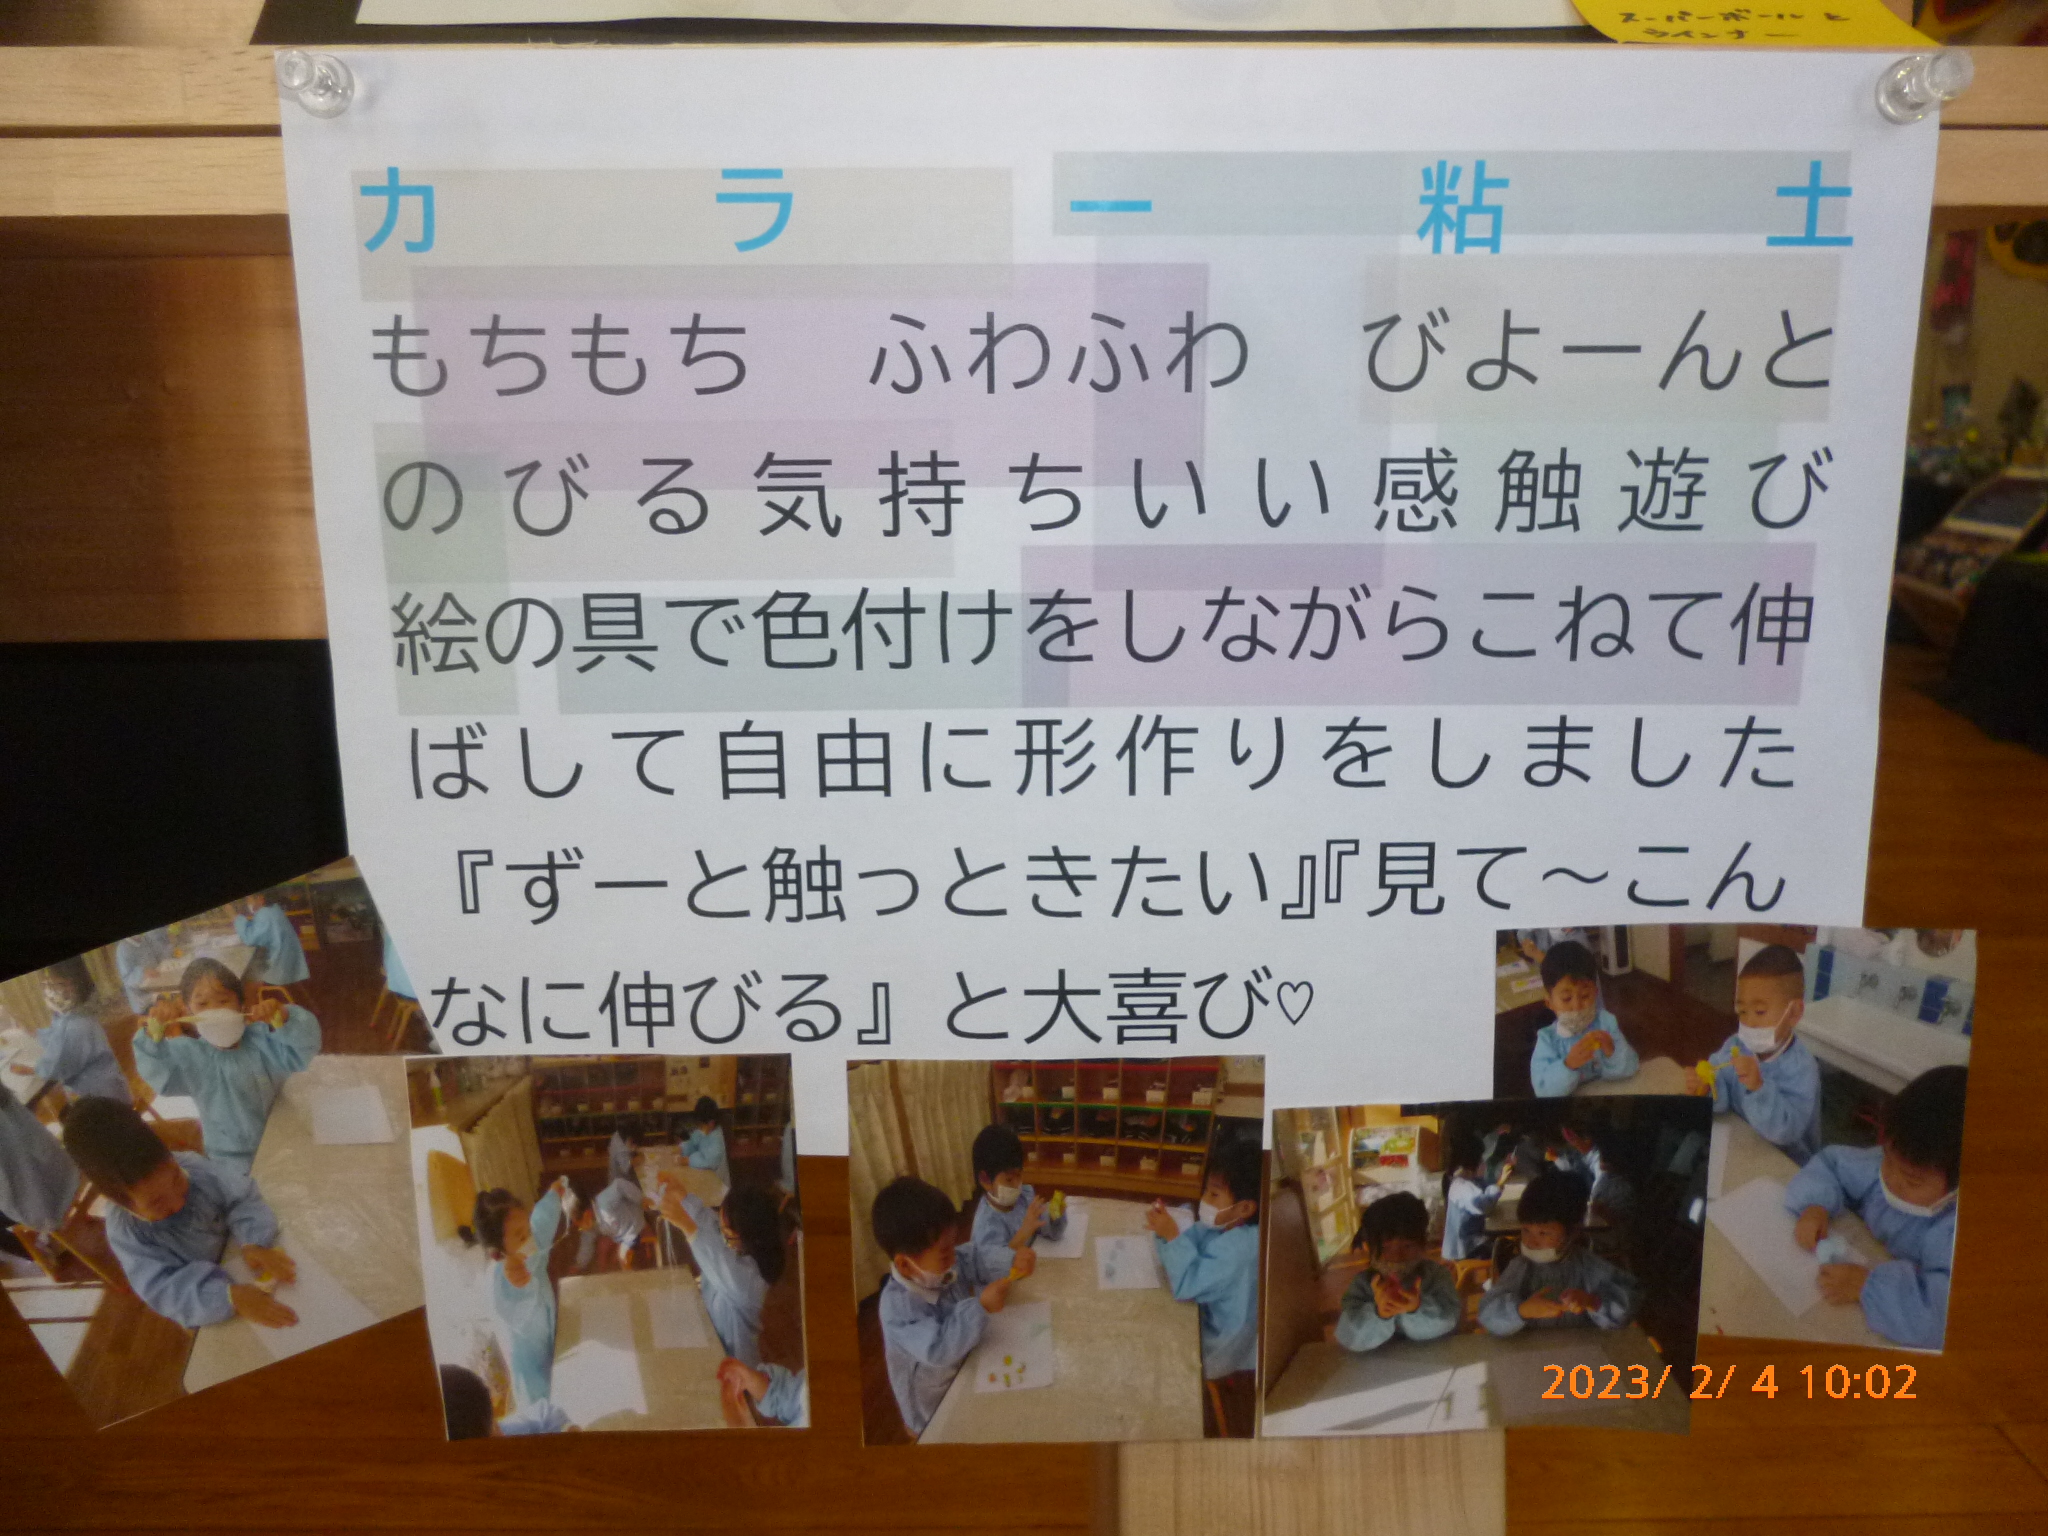 スーパーボールと
ウインナー
カラー粘土
もちもち　ふわふわ　びよーんと
のびる気持ちいい感触遊び
絵の具で色付けをしながらこねて伸
ばして自由に形作りをしました
『ずーと触っときたい』『見て～こん
なに伸びる』と大喜び♡
2023/ 2/ 4 10:02